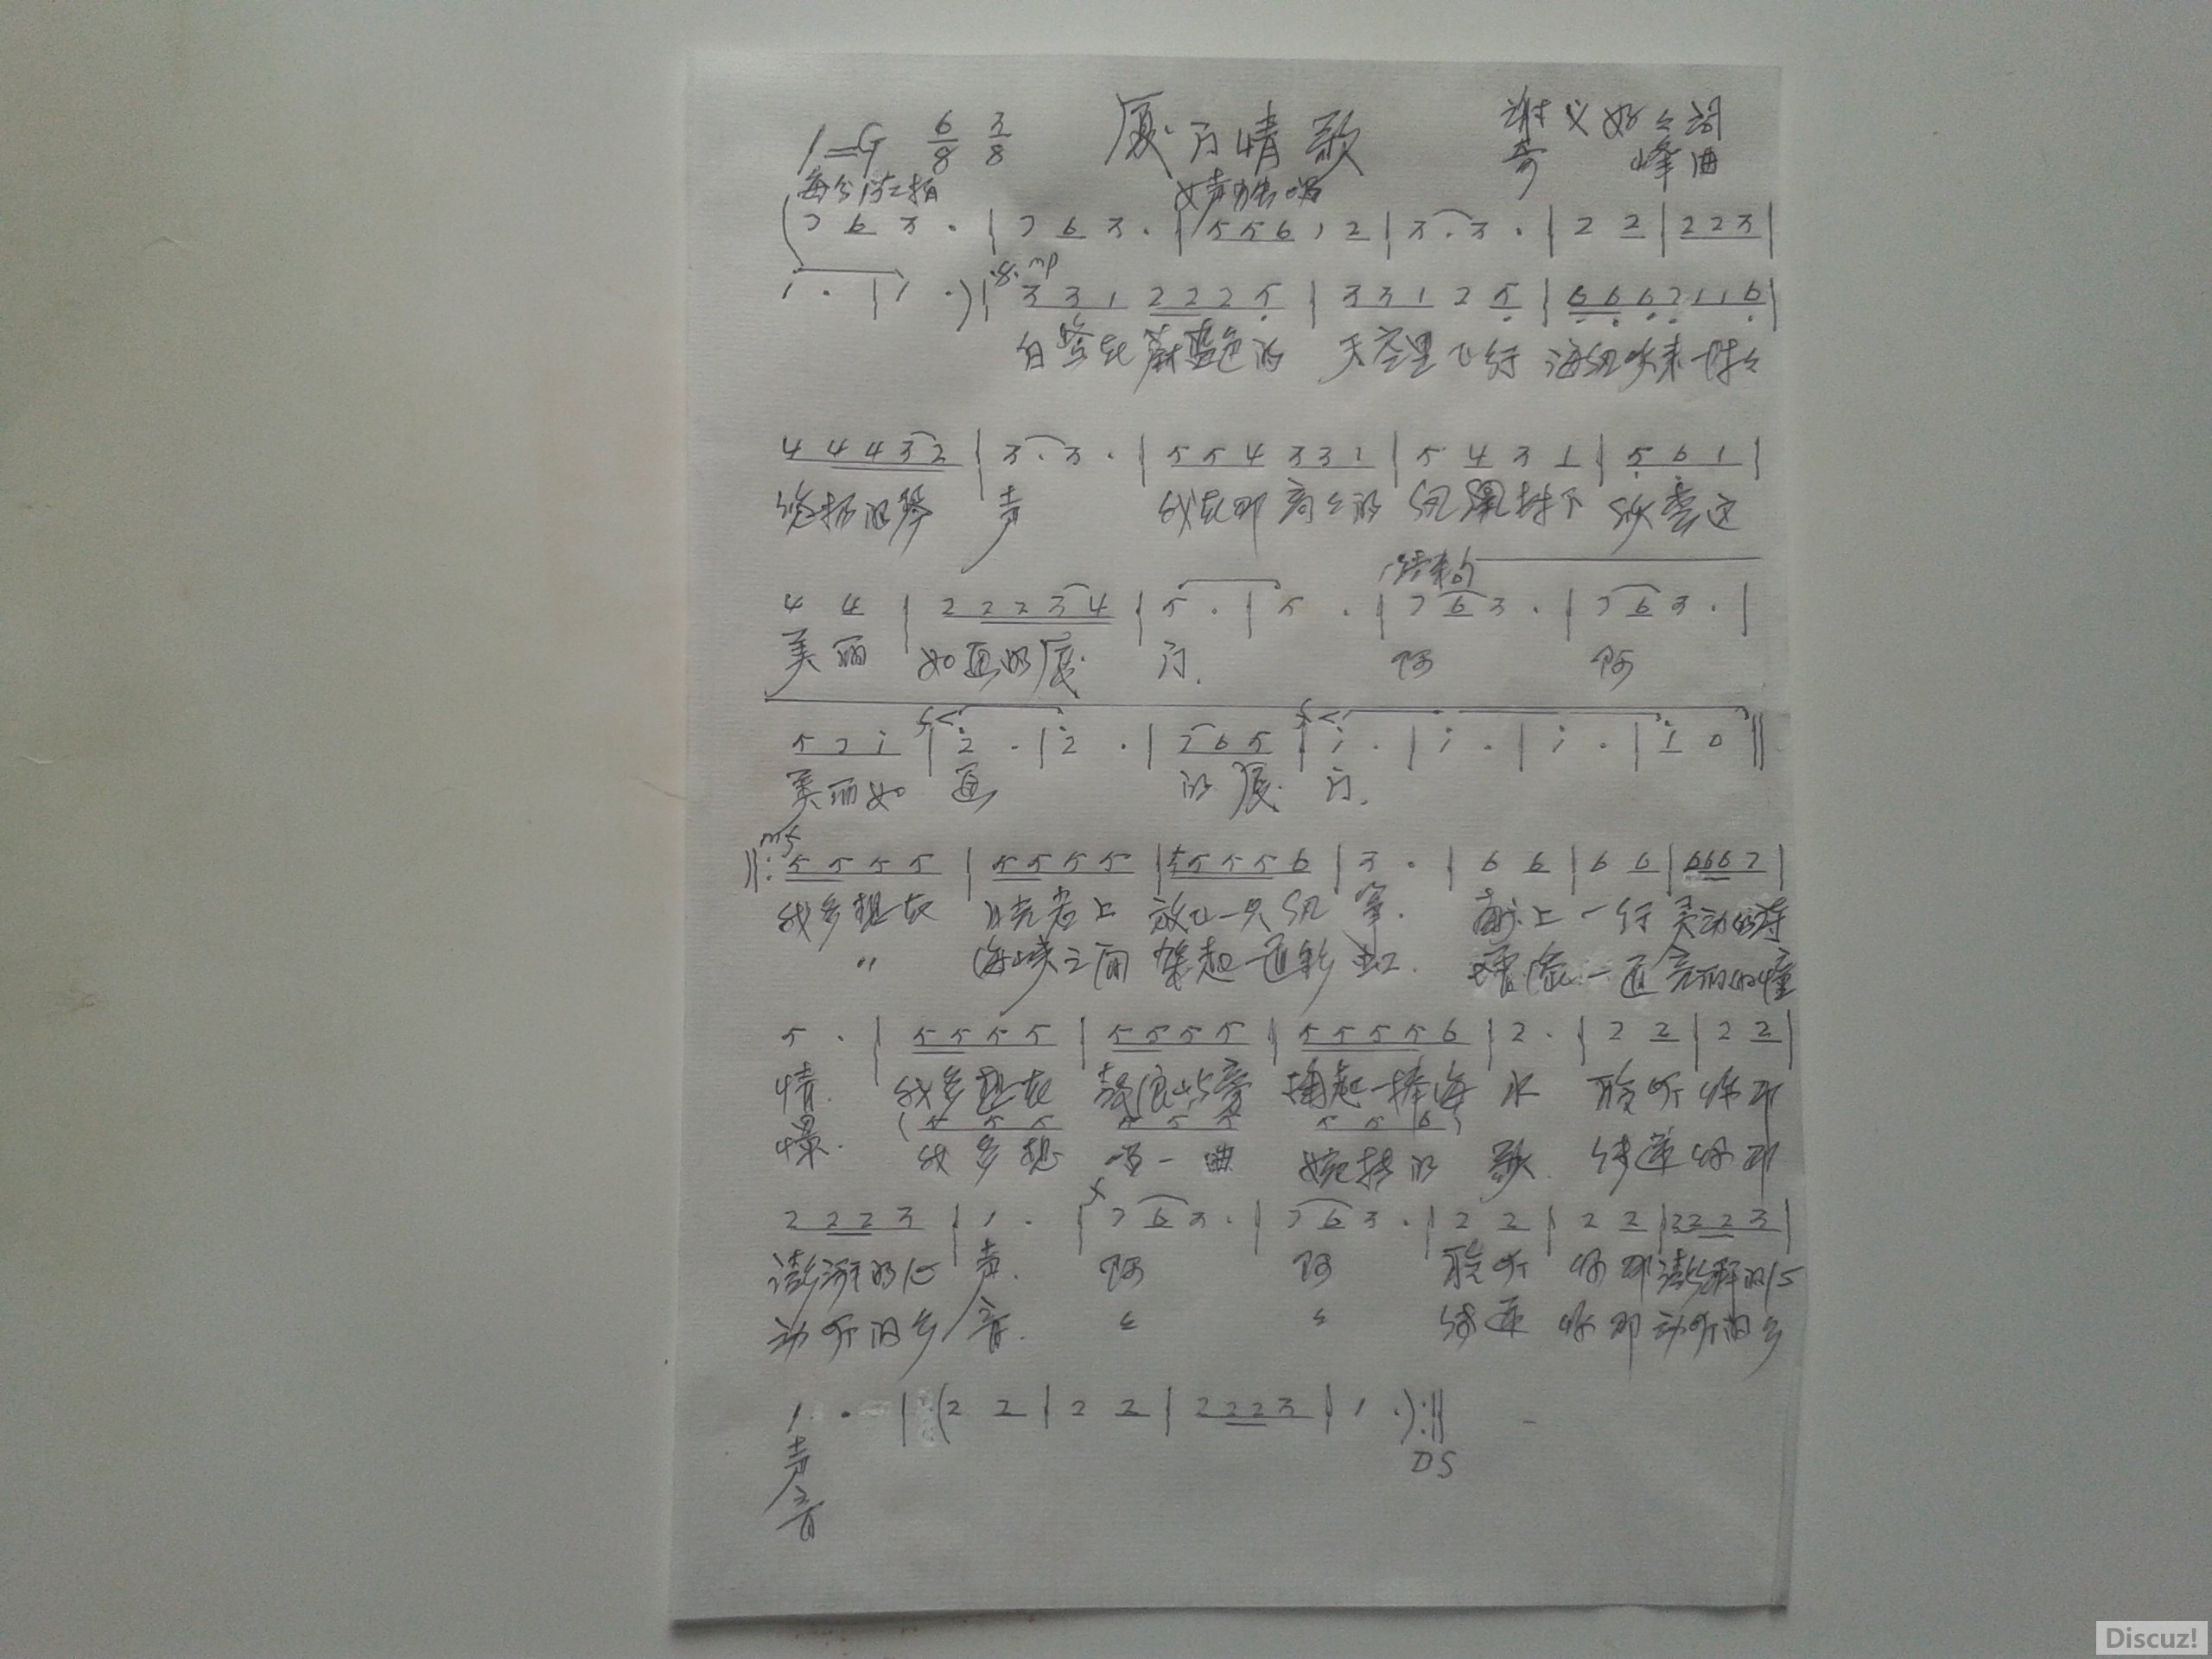 1=G 6/8 3/8 厦门情歌 谢义好 词
峰 曲
女声独唱
( 7 6 3 · | 7 6 3 · | 5 5 6 1 2 | 3 · 3 · | 2 2 | 2 2 3 |
1 · | 1 · ) | mp 3 3 1 2 2 2 5 | 3 3 1 2 5 | 6 6 6 2 1 1 6 |
白鹭在蔚蓝色的 天空里飞行 海风吹来一阵阵
4 4 4 3 2 | 3 · 3 · | 5 5 4 3 3 1 | 5 4 3 1 | 5 6 1 |
悠扬的琴 声 我在那高高的 凤凰树下 欣赏这
结束句
4 4 | 2 2 2 3 4 | 5 · | 5 · | 7 6 3 · | 7 6 3 · |
美丽 如画的厦 门. 啊 啊
5 7 i | f < 2 · | 2 · | 7 6 5 | f < i · | i · | i · | i 0 ‖
美丽如 画 的厦 门.
mf
‖: 5 5 5 5 | 5 5 5 5 | 5 5 5 5 6 | 3 · | 6 6 | 6 6 | 6 6 6 7 |
我多想在 日光岩上 放飞一只风 筝. 献上一行 灵动的诗
" 海峡之间 架起一道彩 虹. 一道亮丽的憧
5 · | 5 5 5 5 | 5 5 5 5 | 5 5 5 5 6 | 2 · | 2 2 | 2 2 |
情. 我多想在 鼓浪屿旁 掬起一捧海 水 聆听你那
( 5 5 5 5 5 5 5 5 6 )
憬. 我多想 唱一曲 婉转的 歌. 传递你那
2 2 2 3 | 1 · | f 7 6 3 · | 7 6 3 · | 2 2 | 2 2 | 2 2 2 3 |
澎湃的心 声. 啊 啊 聆听 你那澎湃的心
动听的乡 音. 〃 〃 传递 你那动听的乡
1 · | ( 2 2 | 2 2 | 2 2 2 3 | 1 · ) :‖
声 DS
音
Discuz!